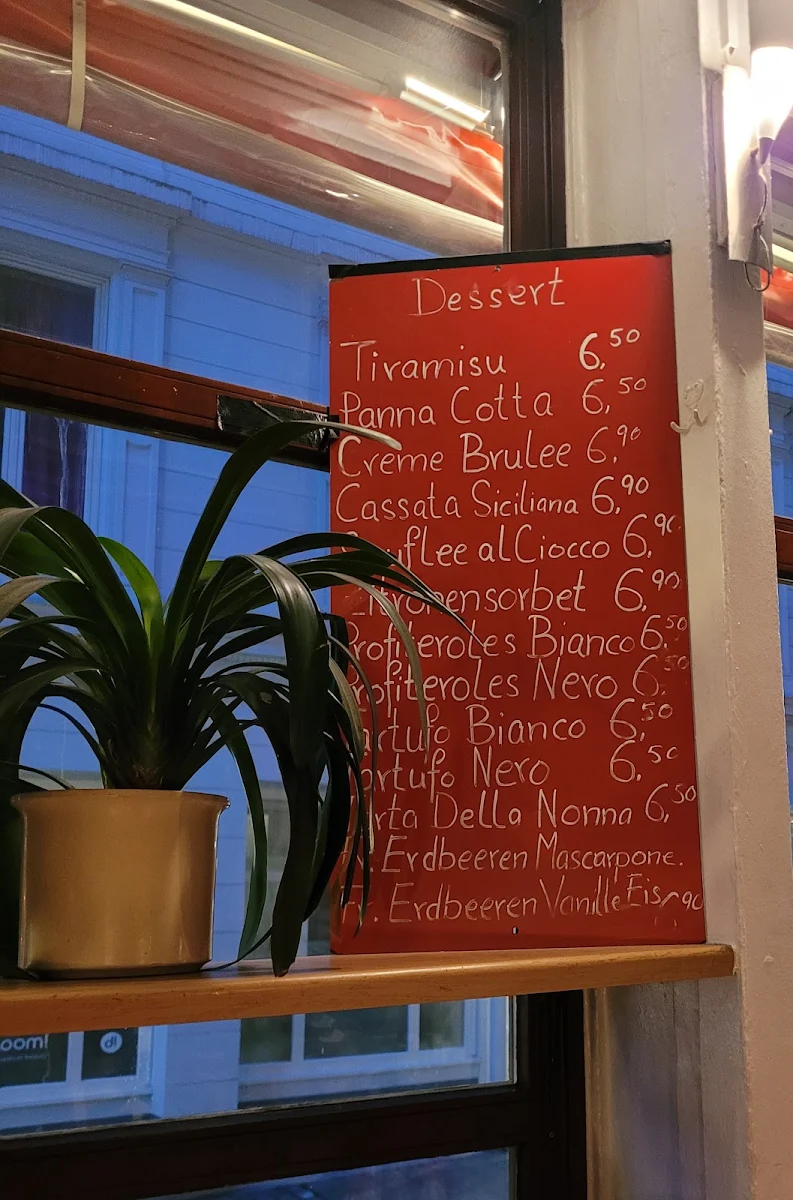 Dessert
Tiramisu 6,50
Panna Cotta 6,50
Creme Brulee 6,90
Cassata Siciliana 6,90
flee al Ciocco 6,90
itronensorbet 6,90
Profiteroles Bianco 6,50
rofiteroles Nero 6,50
artufo Bianco 6,50
artufo Nero 6,50
rta Della Nonna 6,50
Erdbeeren Mascarpone.
Fr. Erdbeeren Vanille Eis 90
oom!